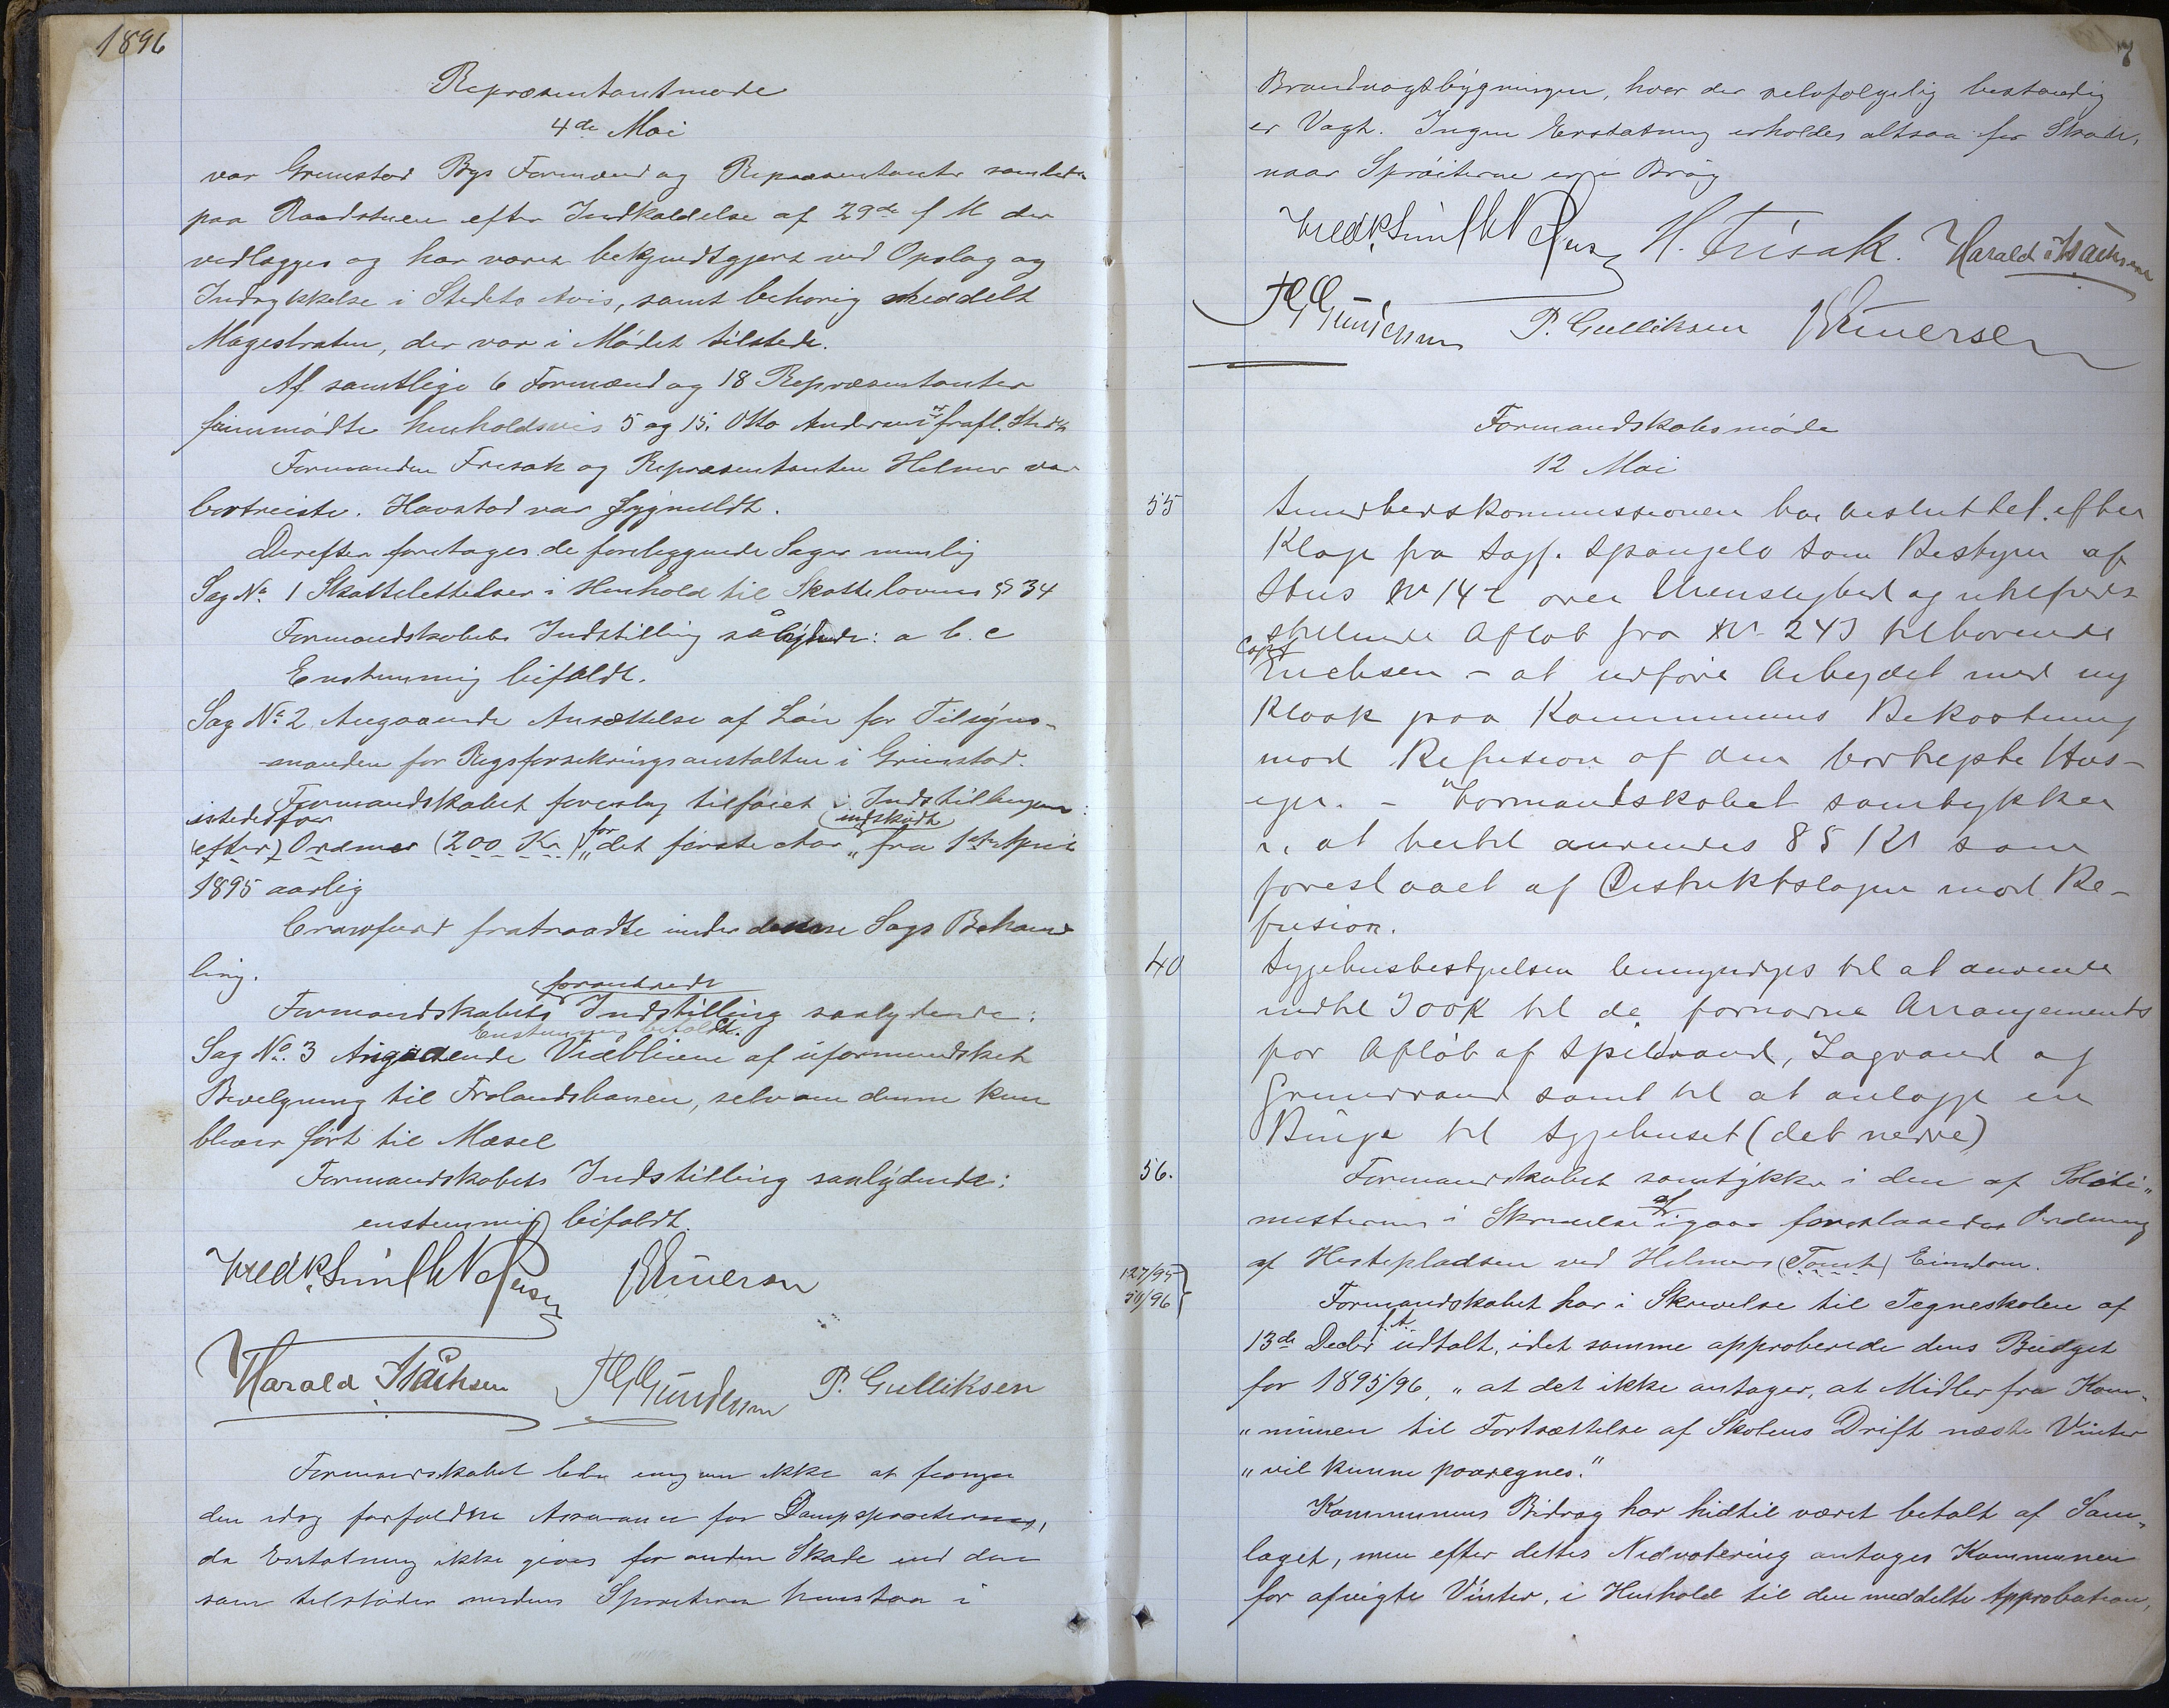 1896
Repræsentantmøde
4de Mai
var Grimstad Bys Formænd og Repræsentanter samlede
paa Raadstuen efter Indkaldelse af 29de f M der
vedlægges og har været bekjendtgjort ved Opslag og
Indrykkelse i Stedets Avis, samt behørig meddelt
Magestraten, der var i Mødet tilstede.
Af samtlige 6 Formænd og 18 Repræsentanter
fremmødte henholdsvis 5 og 15. Otto Andersen er frafl. Stedet
Formanden Frisak og Repræsentanten Helmer var
bortreiste. Havstad var sygmeldt.
Derefter foretages de foreliggende Sager nemlig
Sag No. 1 Skattelettelser i Henhold til Skattelovens § 34
Formandskabets Indstilling sålydende: a b. c
Enstemmig bifaldt.
Sag No. 2 Angaaende Ansættelse af Løn for Tilsyns-
manden for Rigsforsikringsanstalten i Grimstad.
Formandskabet foreslog tilføiet i Indstillingen:
istedetfor indskudt
(efter) Ordene (200 Kr) for "det første Aar" fra 1ste April
1895 aarlig
Crawfurd fratraadte under denne Sags Behand
ling.
forandrede
Formandskabets Indstilling saalydende:
Enstemmig bifaldt.
Sag No. 3 Angaaende Vidbliven af uformindsket
Bevilgning til Frolandsbanen, selv om denne kun
bliver ført til Mæsel
Formandskabets Indstilling saalydende:
enstemmig bifaldt.
Fredk Smith Petersen
Harald Isachsen P. Gulliksen
Formandskabet
den idag forfaldne Assurance for Dampsprøiterne,
da Erstatning ikke gives for anden Skade end den
som tilstøder medens Sprøiterne henstaa i
7
Brandvagtbygningen, hvor der selvfølgelig bestandig
er Vagt. Ingen Erstatning erholdes altsaa for Skade,
naar Sprøiterne er i Brug
Fredk Smith Petersen H. Frisak. Harald Isachsen
P. Gulliksen
Formandskabsmøde
12 Mai
55 Sundhedskommissionen har besluttet efter
Klage fra Sagf. Spangelo som Bestyrer af
Hus No 142 over Urenslighed og utilfreds-
stillende Afløb fra No 243 tilhørende
Capt
Ericksen - at udføre Arbeydet med ny
Kloak paa Kommunens Bekostning
mod Refusion af den bortreyste Hus-
eyer. - Formandskabet samtykker
i, at hertil anvendes 85 Kr som
foreslaaet af Distriktslægen mod Re-
fusion.
40 Sygehusbestyrelsen bemyndiges til at anvende
indtil 300K til de fornødne Arrangements
for Afløb af Spildvand, Tagvand og
Grundvand samt til at anlægge en
Binge til Sygehuset (det nedre)
56. Formandskabet samtykker i den af Politi"
mesteren i Skrivelse af igaar foreslaaede Ordning
af Hestepladsen ved Helmers (Tomt) Eiendom.
127/95
50/96
Formandskabet har i Skrivelse til Tegneskolen af
13de Decbr f.A. udtalt, idet samme approberede dens Budget
for 1895/96, "at det ikke antager, at Midler fra Kom-
"munen til Fortsættelse af Skolens Drift næste Vinter
"vil kunne paaregnes."
Kommunens Bidrag har hidtil været betalt af Sam-
laget, men efter dettes Nedvotering antages Kommunen
for afvigte Vinter, i Henhold til den meddelte Approbation,